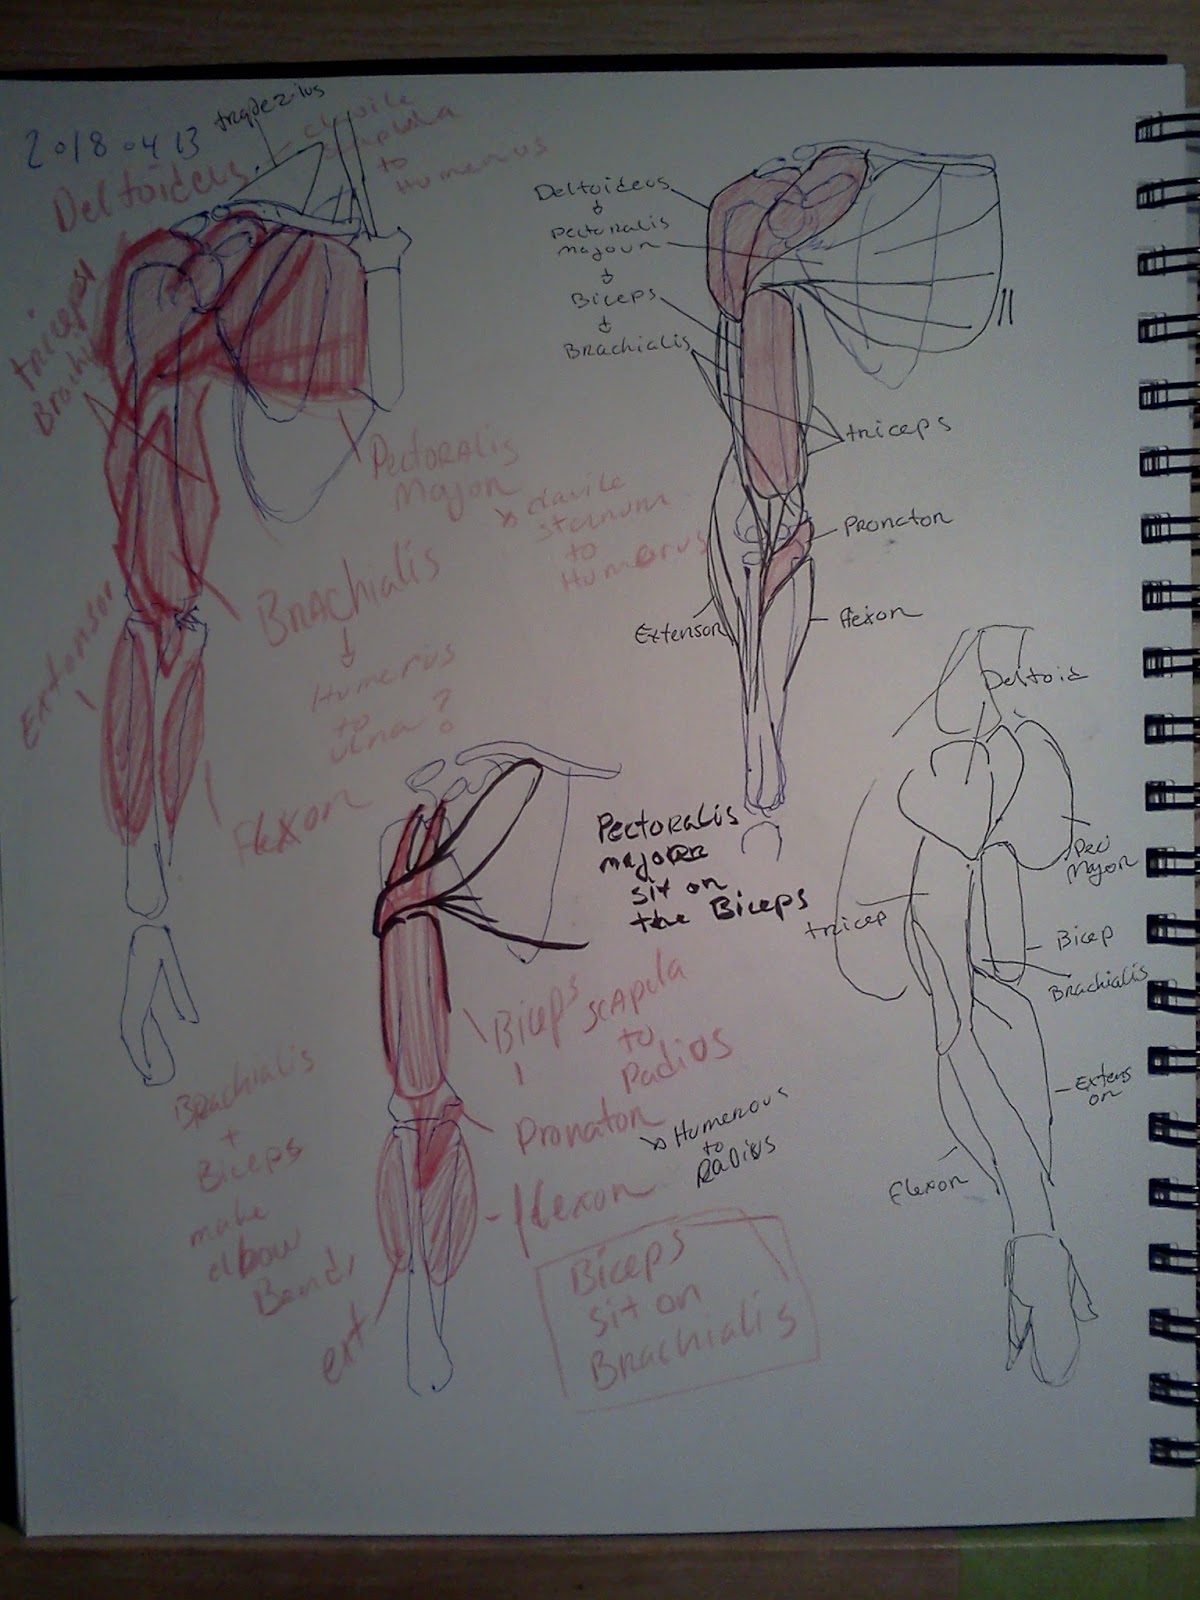 2018 04 13
trapezius
Deltoideus
clavile
scapula
to
Humerius
triceps
Brachi
Pectoralis
Major
clavile
sternum
to
Humerus
Brachialis
Humerus
to
ulna?
Extensor
Flexor
Deltoideus
Pectoralis
majour
Biceps
Brachialis
triceps
Pronator
Extensor
flexor
Pectoralis
major
sit on
the Biceps
Biceps
scapula
to
Radios
Pronator
Humerous
to
Radius
flexor
ext
Brachialis
+
Biceps
make
elbow
Bend
Biceps
sit on
Brachialis
Deltoid
Pec
Major
tricep
Bicep
Brachialis
Extens
or
Flexor